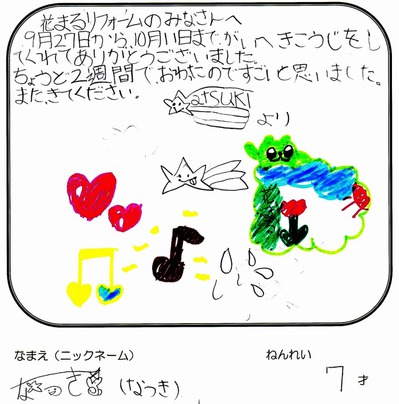 花まるリフォームのみなさんへ
9月27日から、10月11日まで、がいへきこうじをし
てくれてありがとうございました。
ちょうど2週間でおわたのですごいと思いました。
また、きてください。
NATSUKI
より
なまえ(ニックネーム) ねんれい
なつき (なつき) 7才